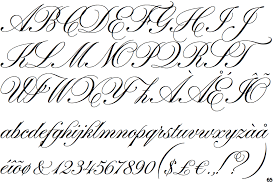 ABCDEFGHIJ
KLMNOPQRST
UVWXYZÀÅÉÎÕ
abcdefghijklmnopqrstuvwxyzàå
éîõø&1234567890($£€.,!?)
65